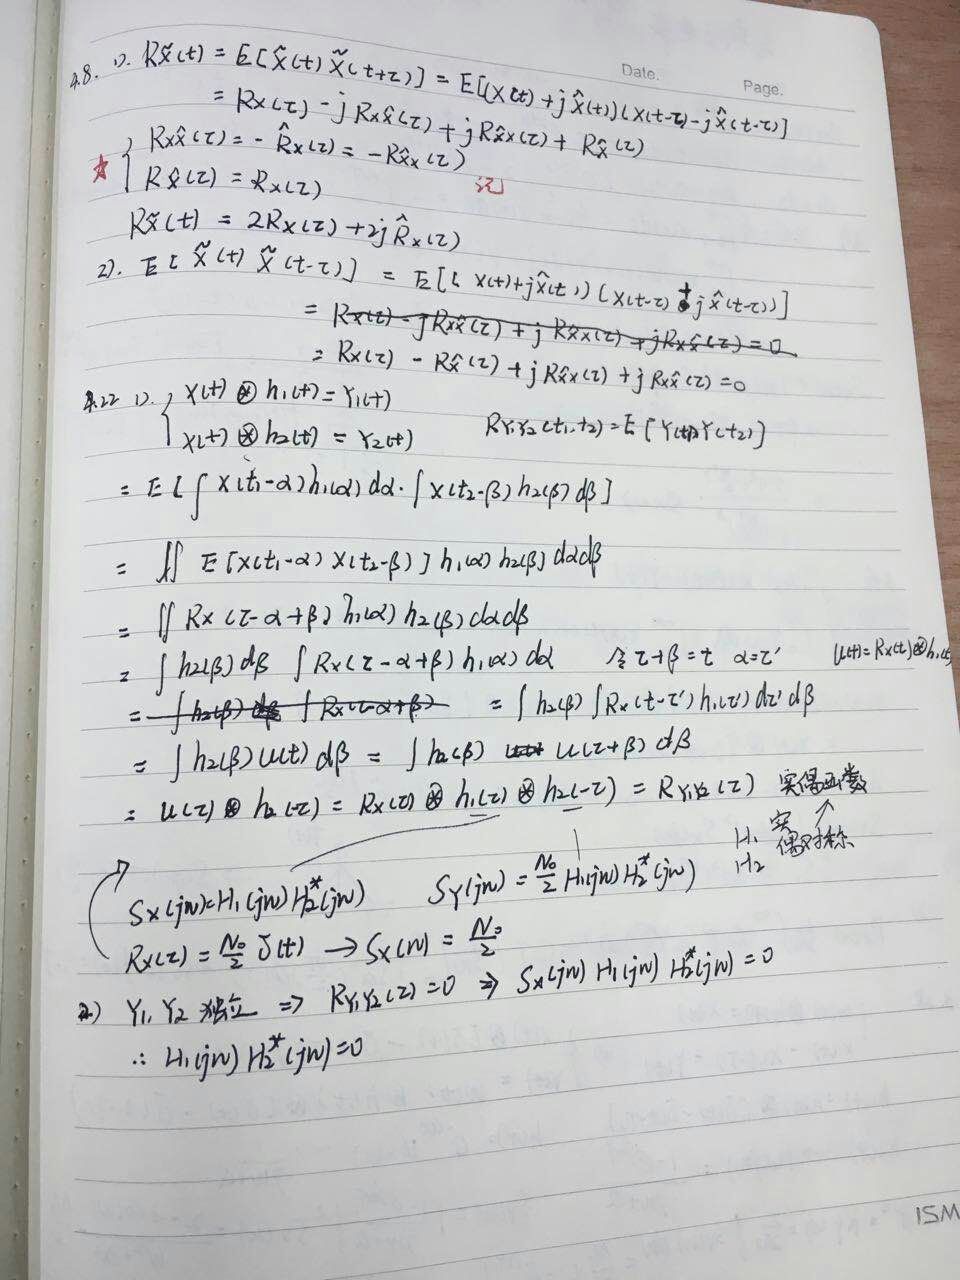 Date.
Page.
4.8. 1). RX̃(t) = E[X̃(t) X̃(t+τ)] = E[(X(t)+jX̂(t))(X(t-τ)-jX̂(t-τ)]
= Rx(τ) - jRxx̂(τ) + jRx̂x(τ) + Rx̂(τ)
☆ { Rxx̂(τ) = -R̂x(τ) = -Rx̂x(τ)
Rx̂(τ) = Rx(τ) 记
Rx̃(t) = 2Rx(τ) + 2jR̂x(τ)
2). E[X̃(t) X̃(t-τ)] = E[(X(t)+jX̂(t))(X(t-τ)+jX̂(t-τ))]
= Rx(τ) - jRxx̂(τ) + jRx̂x(τ) + jRxx̂(τ) = 0
= Rx(τ) - Rx̂(τ) + jRx̂x(τ) + jRxx̂(τ) = 0
4.22 1). { X(t) ⊛ h1(t) = Y1(t)
X(t) ⊛ h2(t) = Y2(t) RY1Y2(t1,t2) = E[Y(t1)Y(t2)]
= E[∫X(t1-α)h1(α)dα·∫X(t2-β)h2(β)dβ]
= ∬ E[X(t1-α)X(t2-β)]h1(α)h2(β)dαdβ
= ∬ Rx(τ-α+β)h1(α)h2(β)dαdβ
= ∫h2(β)dβ ∫Rx(τ-α+β)h1(α)dα 令τ+β=t α=τ' U(t)=Rx(t)⊛h1(t)
= ∫h2(β)dβ ∫Rx(τ-α+β) = ∫h2(β)∫Rx(t-τ')h1(τ')dτ'dβ
= ∫h2(β)U(t)dβ = ∫h2(β) U(τ+β)dβ
= U(τ)⊛h2(-τ) = Rx(τ)⊛h1(τ)⊛h2(-τ) = RY1Y2(τ) 实偶函数
H1 H2 实偶对称
Sx(jw)=H1(jw)H2*(jw) SY(jw)=N0/2 H1(jw)H2*(jw)
Rx(τ)=N0/2 δ(t) → Sx(w)=N0/2
2.) Y1,Y2独立 ⇒ RY1Y2(τ)=0 ⇒ Sx(jw)H1(jw)H2*(jw)=0
∴ H1(jw)H2*(jw)=0
ISM